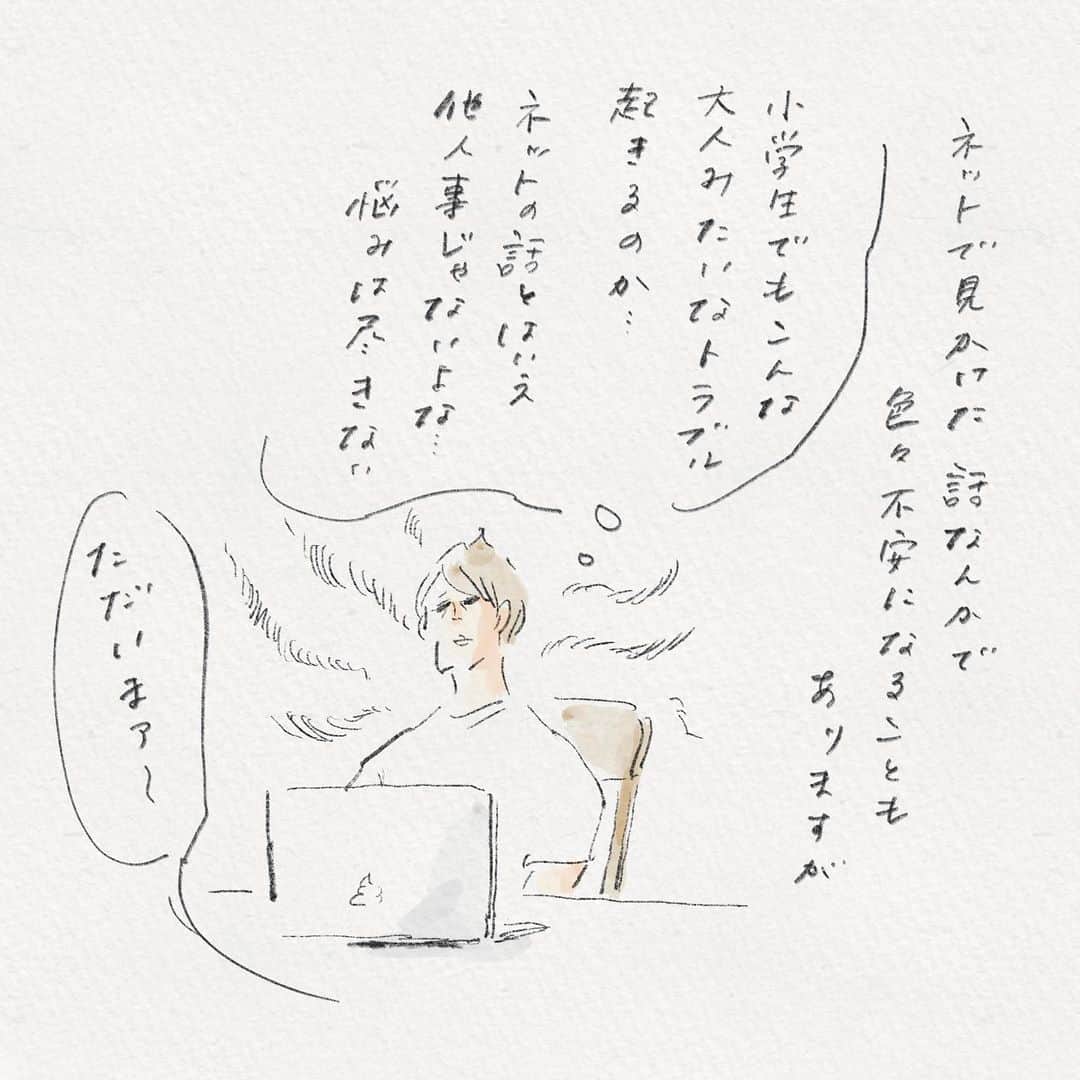 ネットで見かけた話なんかで
色々不安になることも
ありますが
小学生でもこんな
大人みたいなトラブル
起きるのか…
ネットの話とはいえ
他人事じゃないよな…
悩みは尽きない
ただいまァ〜